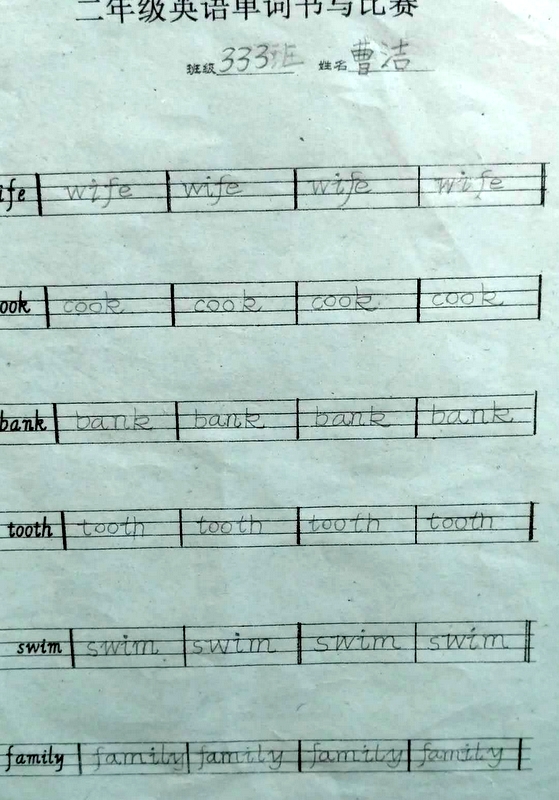 二年级英语单词书写比赛
班级 333班 姓名 曹洁
ife wife wife wife wife
ook cook cook cook cook
bank bank bank bank bank
tooth tooth tooth tooth tooth
swim swim swim swim swim
family family family family family